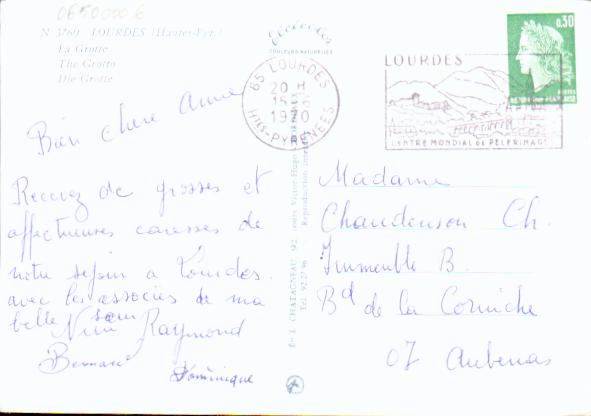 0650000 6
N 3760 LOURDES (Hautes-Pyr.)
La Grotte
The Grotto
Die Grotte
COULEURS NATURELLES
65 LOURDES
20 H
1970
HTES-PYRENEES
LOURDES
CENTRE MONDIAL DE PELERINAGES
0,30
Bien chère Annie
Recevez de grosses et
affectueuses caresses de
notre séjour à Lourdes.
avec les associés de ma
belle soeur
Raymond
Bernard
Dominique
Éts L. CHATAGNEAU, 92, cours Victor-Hugo
Tél. 92.27.96
Reproduction
Madame
Chaudenson Ch.
Immeuble B.
Bd de la Corniche
07 Aubenas